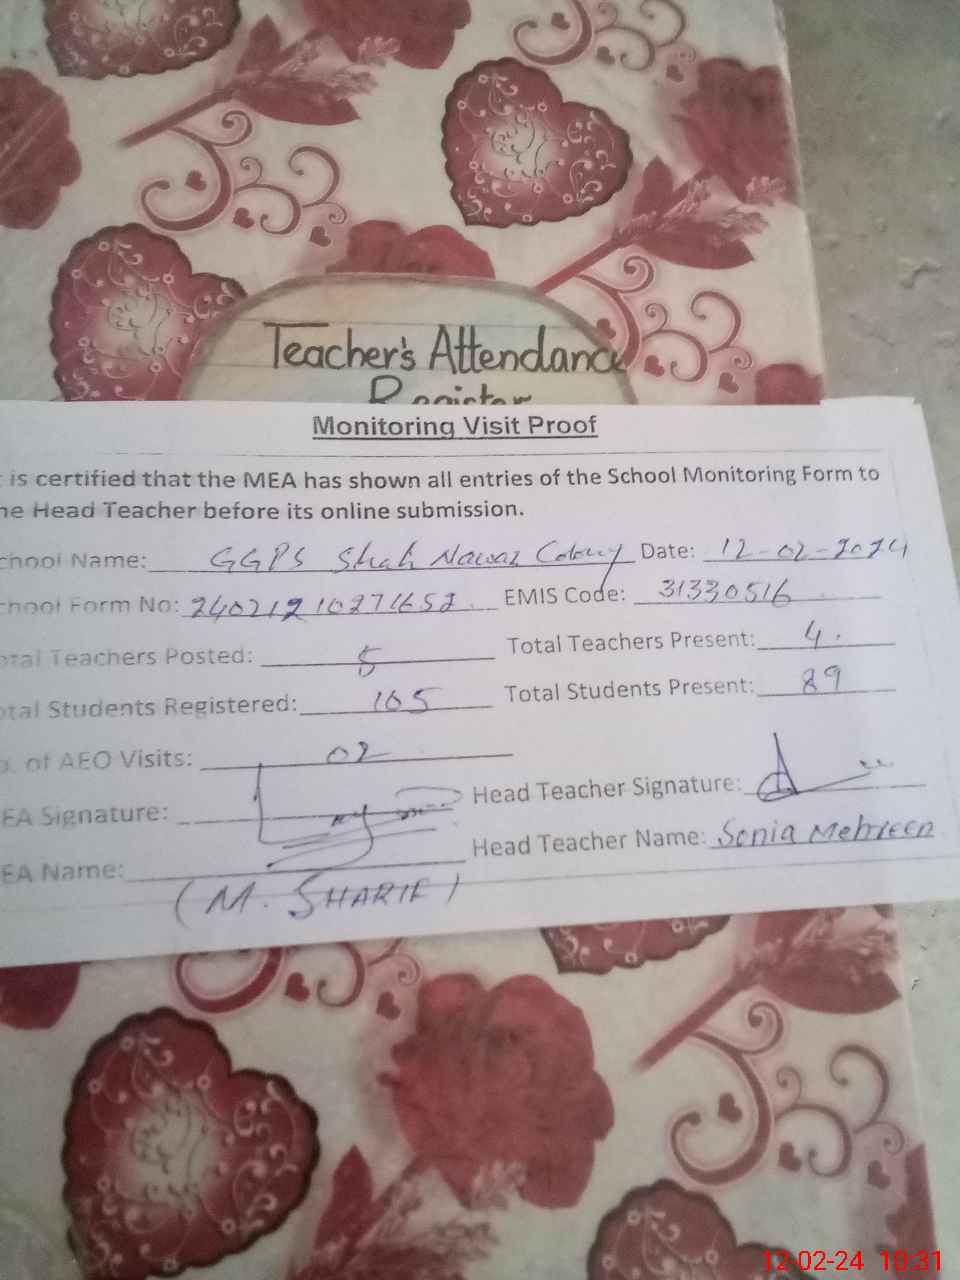 Teacher's Attendance
Register
Monitoring Visit Proof
is certified that the MEA has shown all entries of the School Monitoring Form to
he Head Teacher before its online submission.
chool Name: GGPS Shah Nawaz Colony Date: 12-02-2024
chool Form No: 24021210271652 EMIS Code: 31330516
otal Teachers Posted: 5 Total Teachers Present: 4.
otal Students Registered: 165 Total Students Present: 89
o. of AEO Visits: 02
EA Signature: Head Teacher Signature:
EA Name: Head Teacher Name: Sonia Mehreen
(M. SHARIF)
12-02-24 10:31